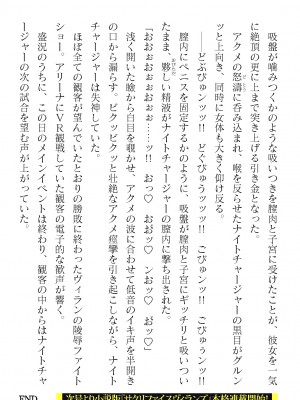 吸盤が噛みつくのような吸いつきを膣肉と子宮に受けたことが、彼女を一気
に絶頂の更に上まで突き上げる引き金となった。
アクメの怒濤に呑み込まれ、喉を反らせたナイトチャージャーの黒目がグルン
ッと上向き、同時に女体も大きく仰け反る。
――どぶびゅんッ!! どぐびゅうッッッ!! ごびゅンッ!! ごびゅぅンッ!!
膣内にペニスを固定するかのように、吸盤が膣肉と子宮にギッチリと吸いつい
たまま、夥しい精液がナイトチャージャーの膣内に撃ち出された。
「おおぉぉおぉおぉ――ッ!! おっ♡ おッ♡ ンおッ♡ おッ♡」
浅く開いた瞼から白目を覗かせ、アクメの波に合わせて低音のイキ声を半開き
の口から漏らす。ビクッビクッと壮絶なアクメ痙攣を引き起こしながら、ナイト
チャージャーは失神していた。
ほぼ全ての観客が望んでいたとおりの勝敗に終わったヴィランの陵辱ファイト
ショー。アリーナにＶＲ観戦していた観客の電子的な歓声が響く。
盛況のうちに、この日のメインイベントは終わり、観客の中からはナイトチャ
ージャーの次の試合を望む声が上がっていた。
END
次号より小説版『サクリファイスヴィランズ』本格連載開始!